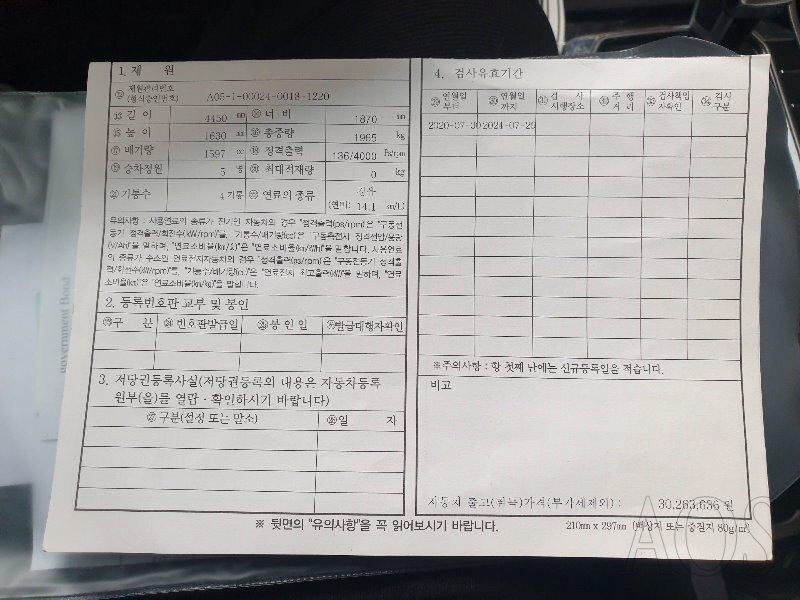 1. 제 원
⑫ 제원관리번호
(형식승인번호) A05-1-00024-0018-1220
⑬ 길 이 4450 mm ⑭ 너 비 1870 mm
⑮ 높 이 1630 mm ⑯ 총중량 1965 kg
⑰ 배기량 1597 cc ⑱ 정격출력 136/4000 Ps/rpm
⑲ 승차정원 5 명 ⑳ 최대적재량 0 kg
기통수 4 기통 연료의 종류 경유
(연비) 14.1 km/L)
유의사항 : 사용연료의 종류가 전기인 자동차의 경우 "정격출력(ps/rpm)"은 "구동전
동기 정격출력/회전수(kW/rpm)"를, "기통수/배기량(cc)"은 "구동축전지 정격전압/용량
(V/Ah)"을 말하며, "연료소비율(km/ℓ)"은 "연료소비율(km/kWh)"을 말합니다. 사용연료
의 종류가 수소인 연료전지자동차의 경우 "정격출력(ps/rpm)"은 "구동전동기 정격출
력/회전수(kW/rpm)"를, "기통수/배기량(cc)"은 "연료전지 최고출력(kW)"을 말하며, "연료
소비율(km/ℓ)"은 "연료소비율(km/kg)"을 말합니다.
2. 등록번호판 교부 및 봉인
구 분 번호판발급일 봉 인 일 발급대행자확인
3. 저당권등록사실(저당권등록의 내용은 자동차등록
원부(을)를 열람ㆍ확인하시기 바랍니다)
구분(설정 또는 말소) 일 자
4. 검사유효기간
연월일
부터 연월일
까지 검 사
시행장소 주 행
거 리 검사책임
자확인 검사
구분
2020-07-30 2024-07-29
※주의사항 : 항 첫째 난에는 신규등록일을 적습니다.
비고
자동차 출고(취득)가격(부가세제외) : 30,263,636 원
※ 뒷면의 "유의사항"을 꼭 읽어보시기 바랍니다.
210mm x 297mm (백상지 또는 중질지 80g/㎡)
government Bond
AOS